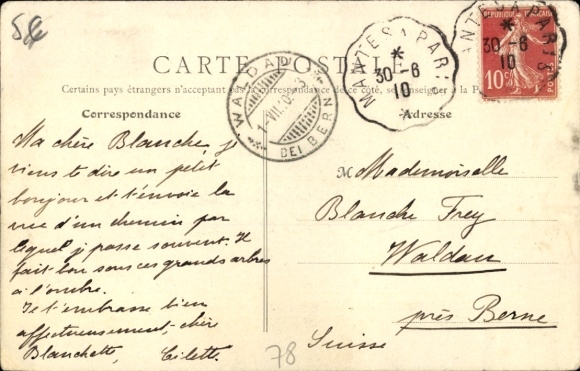 5€
CARTE POSTALE
Certains pays étrangers n'acceptant pas la correspondance de ce côté, se renseigner à la Poste
Correspondance
Ma chère Blanche, je
viens te dire un petit
bonjour et t'envoie la
vue d'un chemin par
lequel j passe souvent. Il
fait bon sous ces grands arbres
à l'ombre.
Je t'embrasse bien
affectueusement, chère
Blanchette, Cilette.
78
WALDAU
1.VII.10.
BEI BERN
MANTES A PARIS
*
30 -6
10
MANTES A PARIS
*
30 -6
10
REPUBLIQUE FRANÇAISE
10 c.
POSTES
Adresse
M Mademoiselle
Blanche Frey
Waldau
près Berne
Suisse